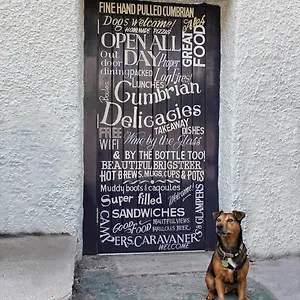 FINE HAND PULLED CUMBRIAN Ales
Dogs welcome!
HOMEMADE PIZZAS
OPEN ALL
DAY
GREAT FOOD
Out door dining
Proper
PACKED Lunches!
LUNCHES
Cumbrian
Delicacies
TAKEAWAY DISHES
FREE WIFI
Wine by the Glass
& BY THE BOTTLE TOO!
BEAUTIFUL BRIGSTEER
HOT BREWS, MUGS, CUPS & POTS
Muddy boots & cagoules
Welcome!
Super filled
SANDWICHES
GOOD FOOD
BEAUTIFUL VIEWS
FABULOUS BEER
CAMPERS CARAVANERS
& GLAMPERS
WELCOME